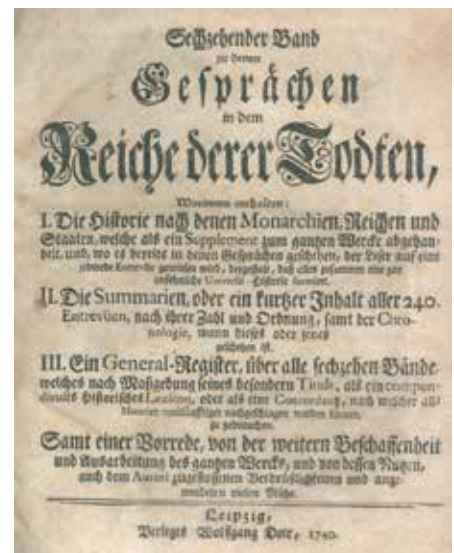 Sechzehender Band
zu denen
Gesprächen
in dem
Reiche derer Todten,
Worinnen enthalten:
I. Die Historie nach denen Monarchien, Reichen und
Staaten, welche als ein Supplement zum gantzen Wercke abgehan-
delt, und, wo es bereits in denen Gesprächen geschehen, der Leser auf eine
jedwede Entrevüe gewiesen wird, dergestalt, daß alles zusammen eine gar
Universal-Historie formiret.
II. Die Summarien, oder ein kurtzer Inhalt aller 240.
Entrevüen, nach ihrer Zahl und Ordnung, samt der Chro-
nologie, wann dieses oder jenes
geschehen ist.
III. Ein General-Register, über alle sechzehen Bände,
welches nach Maßgebung seines besondern Tituls, als ein compen-
dieuses historisches Lexicon, oder als eine Concordantz, nach welcher alle
Materien nachgeschlagen werden können,
zu gebrauchen.
Samt einer Vorrede, von der weitern Beschaffenheit
und Ausarbeitung des gantzen Wercks, und von dessen Nutzen,
auch dem Autori zugestossenen Verdrüßligkeiten und ange-
wendeten vielen Mühe.
Leipzig,
Verlegts Wolfgang Deer, 1740.